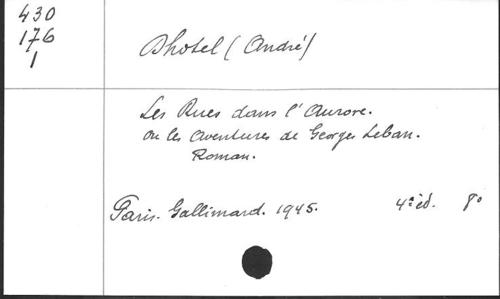 430
176
1
Dhotel (André)
Les Rues dans l'Aurore.
ou les Aventures de Georges Leban.
Roman.
Paris. Gallimard. 1945. 4e éd. 8o